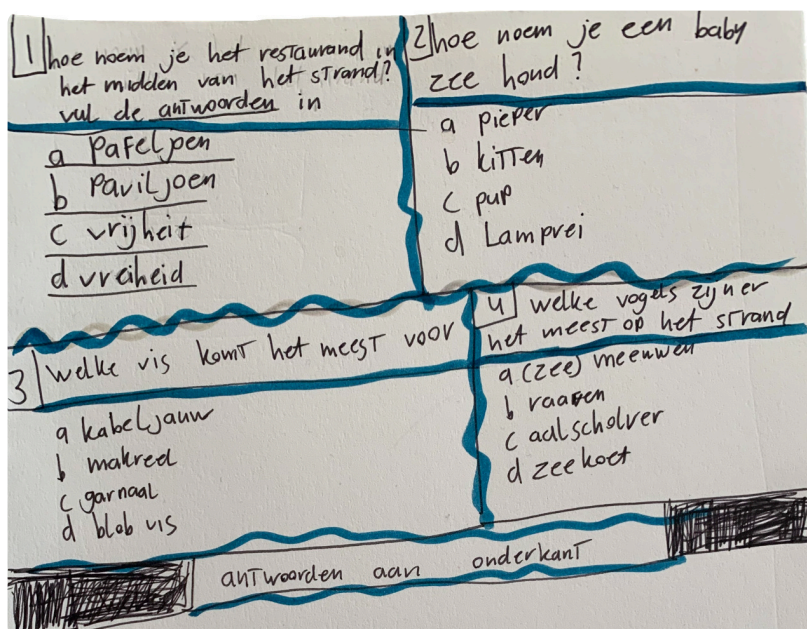 1 hoe noem je het restaurand in
het midden van het strand?
vul de antwoorden in
a Pafelpen
b Paviljoen
c vrijheit
d vreiheid
2 hoe noem je een baby
zee hond?
a pieper
b kitten
c pup
d Lamprei
3 welke vis komt het meest voor
a kabeljauw
b makreel
c garnaal
d blob vis
4 welke vogels zijn er
het meest op het strand
a (zee) meeuwen
b raaven
c aalscholver
d zeekoet
antwoorden aan onderkant